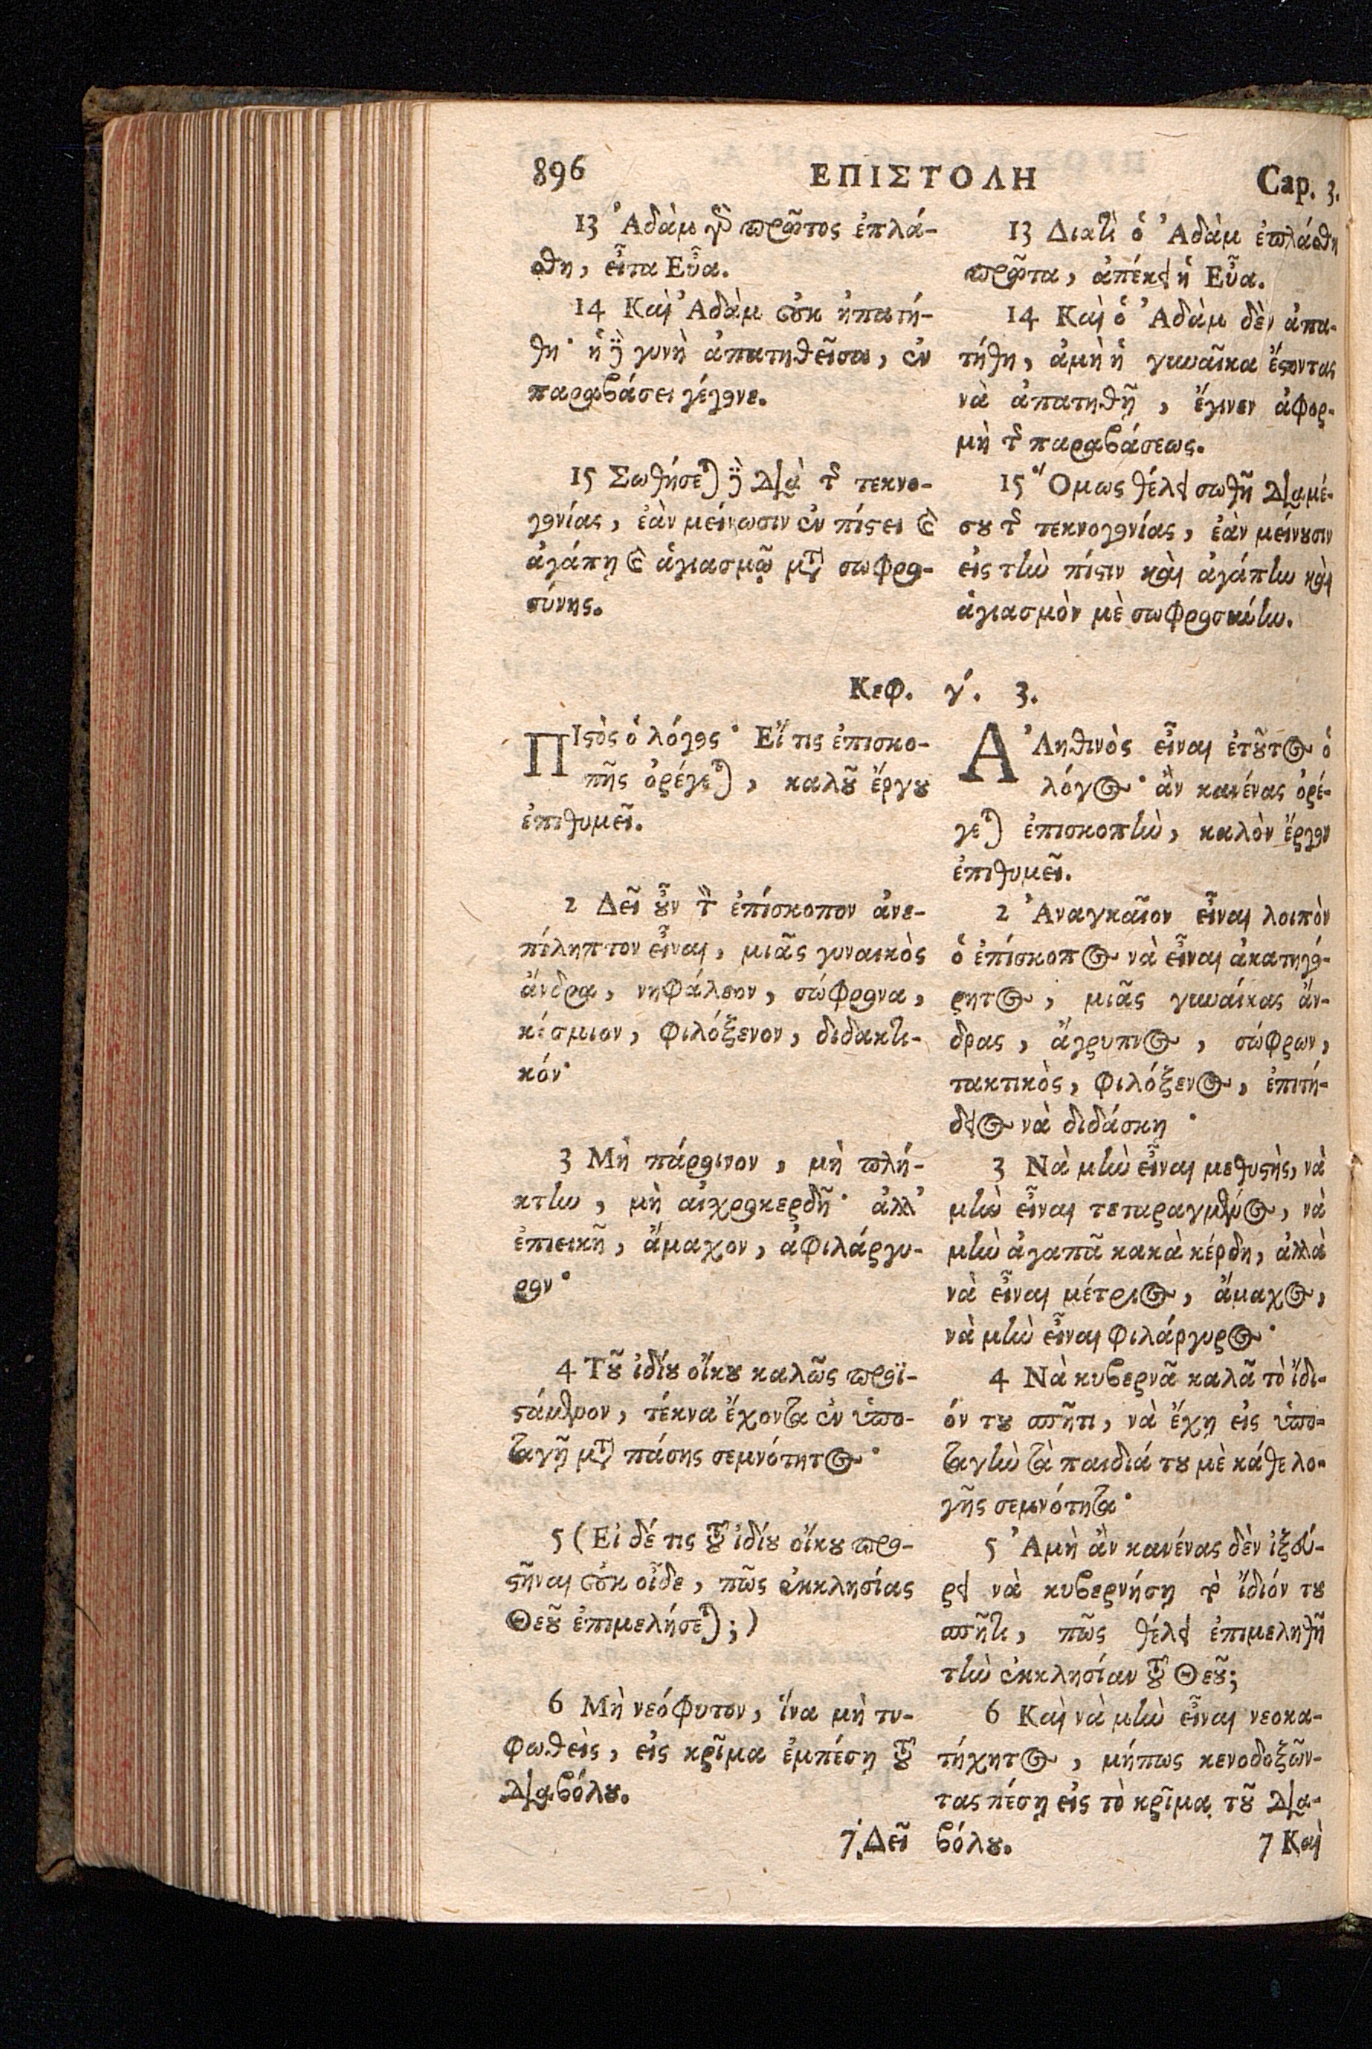 896 ΕΠΙΣΤΟΛΗ Cap. 3.
13 Ἀδὰμ γὸ πρῶτος ἐπλά-
σθη, εἶτα Εὖα.
14 Καὶ Ἀδὰμ οὐκ ἠπατή-
θη· ἡ δὲ γυνὴ ἀπατηθεῖσα, ἐν
παραβάσει γέγονε.
15 Σωθήσεται δὲ διὰ τῆς τεκνο-
γονίας, ἐὰν μείνωσιν ἐν πίστει καὶ
ἀγάπῃ καὶ ἁγιασμῷ μετὰ σωφρο-
σύνης.
13 Διατὶ ὁ Ἀδὰμ ἐπλάσθη
πρῶτα, ἀπέκει ἡ Εὖα.
14 Καὶ ὁ Ἀδὰμ δὲν ἀπα-
τήθη, ἀμὴ ἡ γυναῖκα ἔστοντας
νὰ ἀπατηθῇ, ἔγινεν ἀφορ-
μὴ τῆς παραβάσεως.
15 Ὅμως θέλει σωθῆ διαμέ-
σου τῆς τεκνογονίας, ἐὰν μείνουσιν
εἰς τὴν πίστιν καὶ ἀγάπην καὶ
ἁγιασμὸν μὲ σωφροσύνην.
Κεφ. γ΄. 3.
ΠΙστὸς ὁ λόγος· Εἴ τις ἐπισκο-
πῆς ὀρέγεται, καλοῦ ἔργου
ἐπιθυμεῖ.
2 Δεῖ οὖν τὸν ἐπίσκοπον ἀνε-
πίληπτον εἶναι, μιᾶς γυναικὸς
ἄνδρα, νηφάλεον, σώφρονα,
κόσμιον, φιλόξενον, διδακτι-
κόν·
3 Μὴ πάροινον, μὴ πλή-
κτην, μὴ αἰχροκερδῆ· ἀλλ'
ἐπιεικῆ, ἄμαχον, ἀφιλάργυ-
ρον·
4 Τοῦ ἰδίου οἴκου καλῶς προϊ-
στάμενον, τέκνα ἔχοντα ἐν ὑπο-
ταγῇ μετὰ πάσης σεμνότητος·
5 (Εἰ δέ τις τοῦ ἰδίου οἴκου προ-
στῆναι οὐκ οἶδε, πῶς ἐκκλησίας
Θεοῦ ἐπιμελήσεται;)
6 Μὴ νεόφυτον, ἵνα μὴ τυ-
φωθεὶς, εἰς κρῖμα ἐμπέσῃ τοῦ
διαβόλου.
7 Δεῖ
ΑἈληθινὸς εἶναι ἐτοῦτος ὁ
λόγος· ἂν κανένας ὀρέ-
γεται ἐπισκοπὴν, καλὸν ἔργον
ἐπιθυμεῖ.
2 Ἀναγκαῖον εἶναι λοιπὸν
ὁ ἐπίσκοπος νὰ εἶναι ἀκατηγό-
ρητος, μιᾶς γυναίκας ἄν-
δρας, ἄγρυπνος, σώφρων,
τακτικὸς, φιλόξενος, ἐπιτή-
δειος νὰ διδάσκῃ·
3 Νὰ μὴν εἶναι μεθυστὴς, νὰ
μὴν εἶναι τεταραγμένος, νὰ
μὴν ἀγαπᾶ κακὰ κέρδη, ἀλλὰ
νὰ εἶναι μέτριος, ἄμαχος,
νὰ μὴν εἶναι φιλάργυρος·
4 Νὰ κυβερνᾶ καλᾶ τὸ ἴδι-
όν του σπῆτι, νὰ ἔχῃ εἰς ὑπο-
ταγὴν τὰ παιδιά του μὲ κάθε λο-
γῆς σεμνότητα·
5 Ἀμὴ ἂν κανένας δὲν ἰξεύ-
ρει νὰ κυβερνήσῃ τὸ ἴδιόν του
σπῆτι, πῶς θέλει ἐπιμεληθῆ
τὴν ἐκκλησίαν τοῦ Θεοῦ;
6 Καὶ νὰ μὴν εἶναι νεοκα-
τήχητος, μήπως κενοδοξῶν-
τας πέσῃ εἰς τὸ κρῖμα τοῦ δια-
βόλου.
7 Καὶ